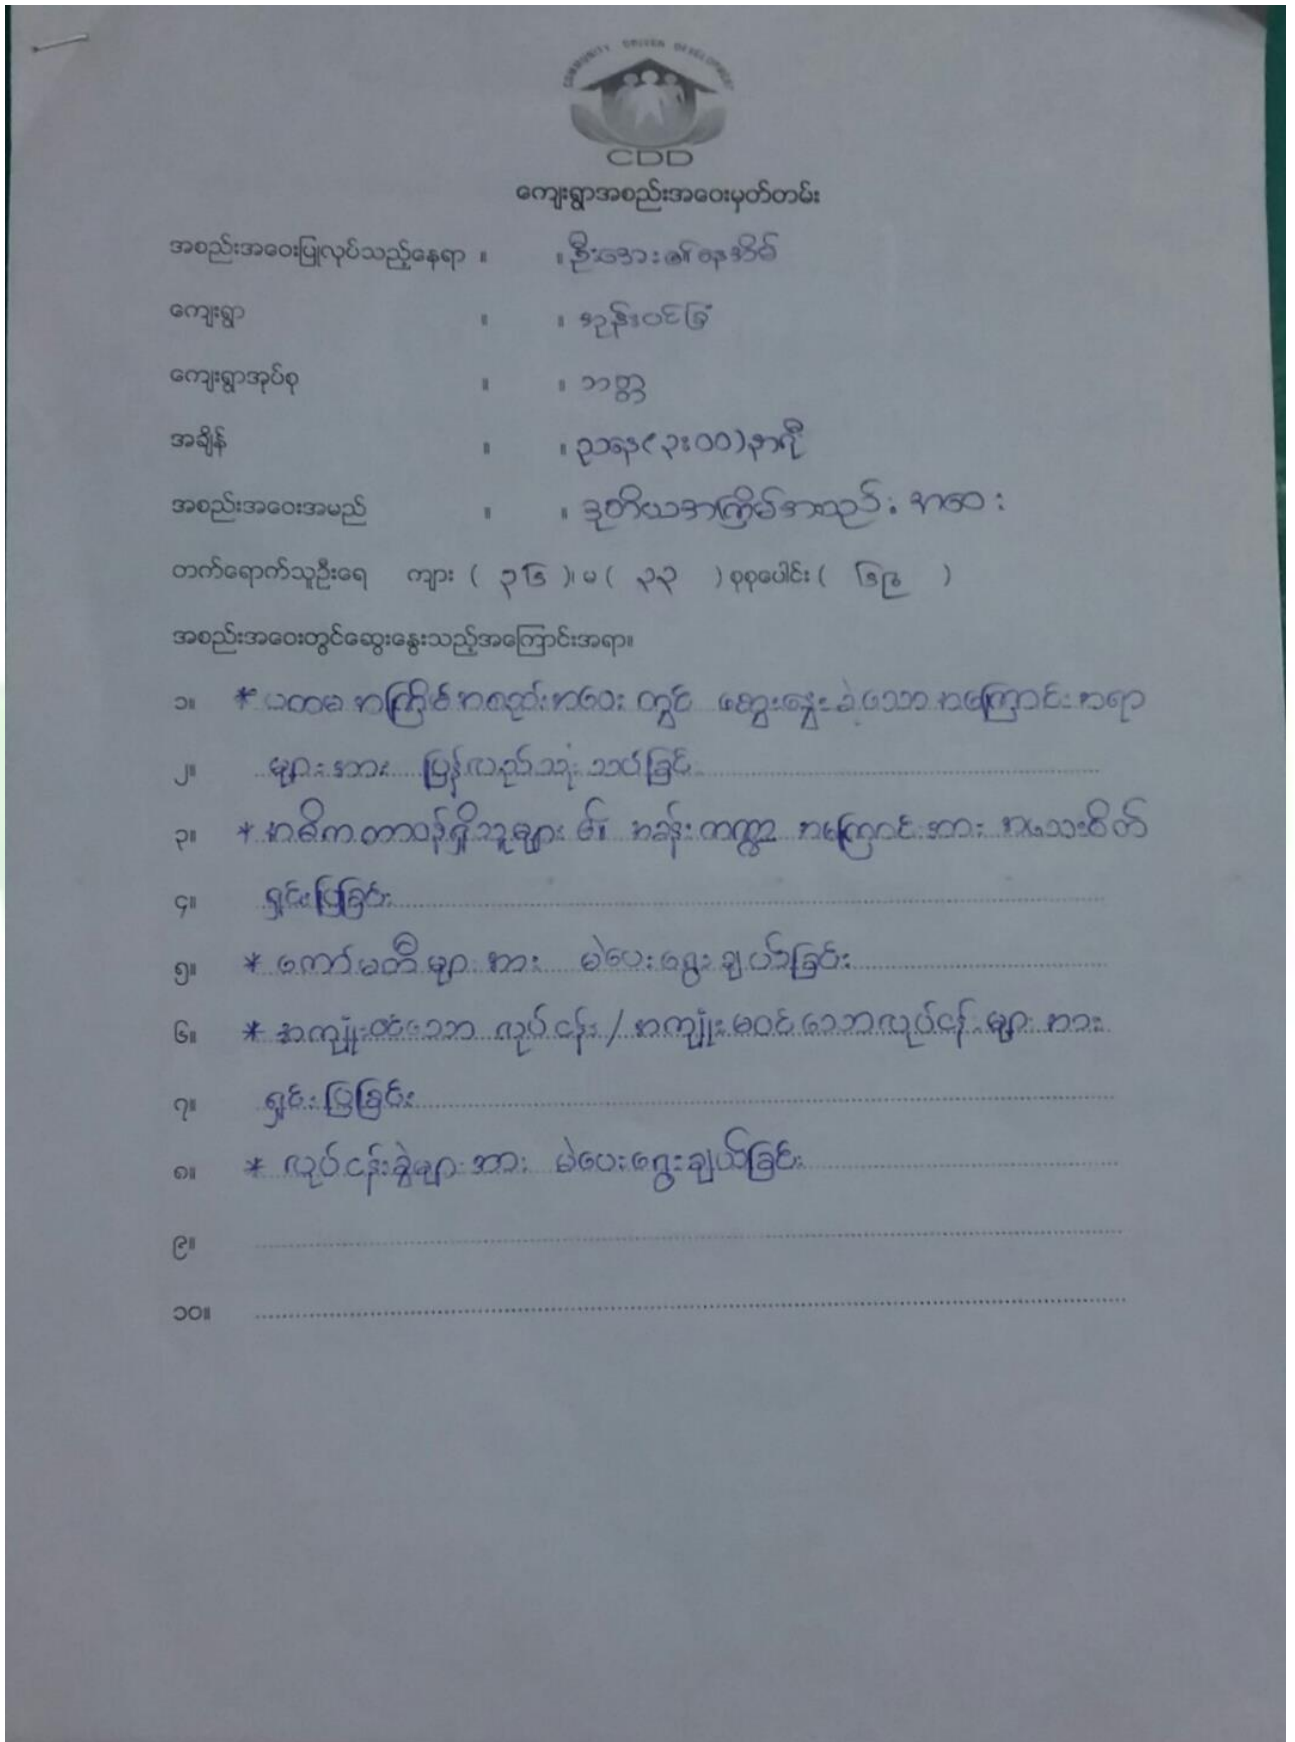 COMMUNITY DRIVEN DEVELOPMENT
CDD
ကျေးရွာအစည်းအဝေးမှတ်တမ်း
အစည်းအဝေးပြုလုပ်သည့်နေရာ ။ ။ ဦးအေး၏နေအိမ်
ကျေးရွာ ။ ။ အုန်းပင်ခြံ
ကျေးရွာအုပ်စု ။ ။ ဘတ္တ
အချိန် ။ ။ ညနေ(၃း၀၀)နာရီ
အစည်းအဝေးအမည် ။ ။ ဒုတိယအကြိမ်အစည်းအဝေး
တက်ရောက်သူဦးရေ ကျား ( ၃၆ )၊ မ ( ၃၃ ) စုစုပေါင်း ( ၆၉ )
အစည်းအဝေးတွင်ဆွေးနွေးသည့်အကြောင်းအရာ။
၁။ * ပထမအကြိမ်အစည်းအဝေးတွင် ဆွေးနွေးခဲ့သောအကြောင်းအရာ
၂။ များအား ပြန်လည်သုံးသပ်ခြင်း
၃။ * အဓိကတာဝန်ရှိသူများ၏ အခန်းကဏ္ဍ အကြောင်းအား အသေးစိတ်
၄။ ရှင်းပြခြင်း
၅။ * ကော်မတီများအား မဲပေးရွေးချယ်ခြင်း
၆။ * အကျုံးဝင်သောလုပ်ငန်း / အကျုံးမဝင်သောလုပ်ငန်းများအား
၇။ ရှင်းပြခြင်း
၈။ * လုပ်ငန်းခွဲများအား မဲပေးရွေးချယ်ခြင်း
၉။
၁၀။